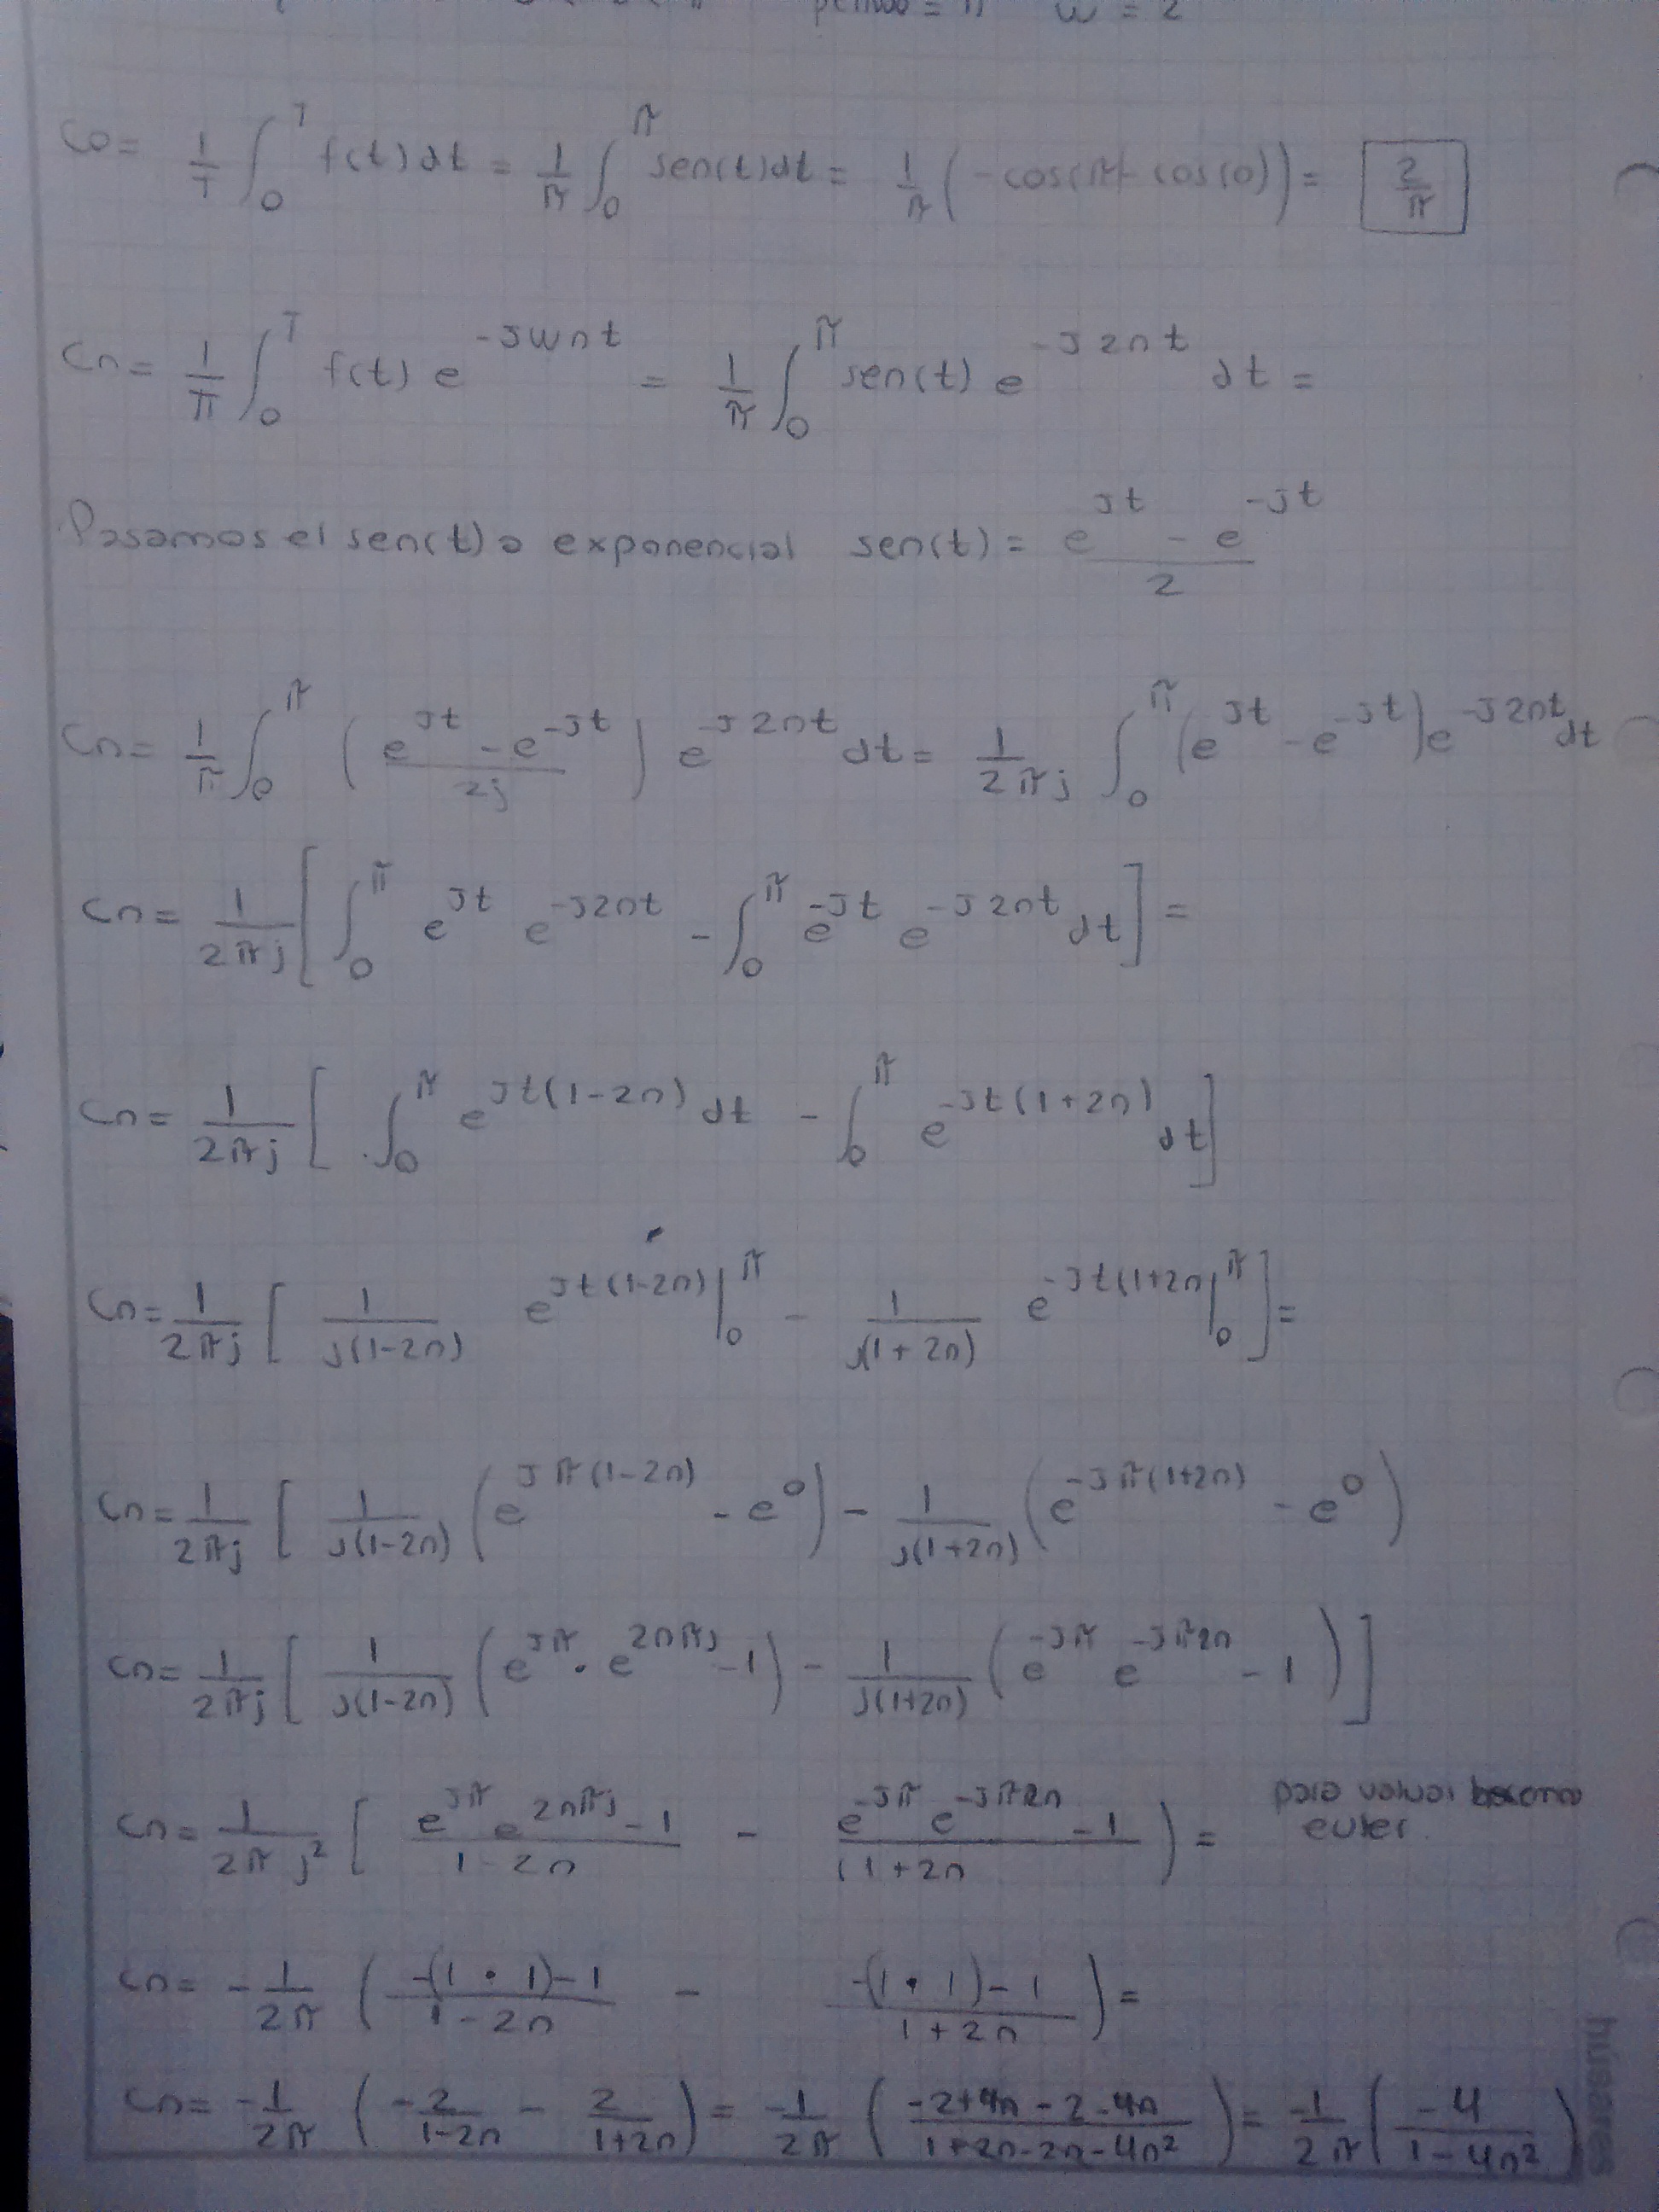 periodo = π w = 2
C0 = 1/T ∫_0^T f(t)dt = 1/π ∫_0^π sen(t)dt = 1/π (-cos(π)- cos(0)) = 2/π
Cn = 1/π ∫_0^T f(t) e^{-jwnt} = 1/π ∫_0^π sen(t) e^{-j2nt} dt =
Pasamos el sen(t) a exponencial sen(t) = (e^{jt} - e^{-jt})/2
Cn = 1/π ∫_0^π ((e^{jt} - e^{-jt})/2j) e^{-j2nt} dt = 1/(2πj) ∫_0^π (e^{jt} - e^{-jt}) e^{-j2nt} dt
Cn = 1/(2πj) [ ∫_0^π e^{jt} e^{-j2nt} - ∫_0^π e^{-jt} e^{-j2nt} dt ] =
Cn = 1/(2πj) [ ∫_0^π e^{jt(1-2n)} dt - ∫_0^π e^{-jt(1+2n)} dt ]
Cn = 1/(2πj) [ 1/(j(1-2n)) e^{jt(1-2n)} |_0^π - 1/(j(1+2n)) e^{-jt(1+2n} |_0^π ] =
Cn = 1/(2πj) [ 1/(j(1-2n)) (e^{jπ(1-2n)} - e^0) - 1/(j(1+2n)) (e^{-jπ(1+2n)} - e^0)
Cn = 1/(2πj) [ 1/(j(1-2n)) (e^{jπ} · e^{2nπj} - 1) - 1/(j(1+2n)) (e^{-jπ} e^{-jπ2n} - 1) ]
Cn = 1/(2πj²) [ (e^{jπ} e^{2nπj} - 1)/(1-2n) - (e^{-jπ} e^{-jπ2n} - 1)/(1+2n) ) = para
euler
Cn = -1/(2π) ( (-(1·1)-1)/(1-2n) - (-(1·1)-1)/(1+2n) ) =
Cn = -1/(2π) ( -2/(1-2n) - 2/(1+2n) ) = -1/(2π) ( (-2+4n-2-4n)/(1+2n-2n-4n²) ) = -1/(2π) ( -4/(1-4n²) )
húsares